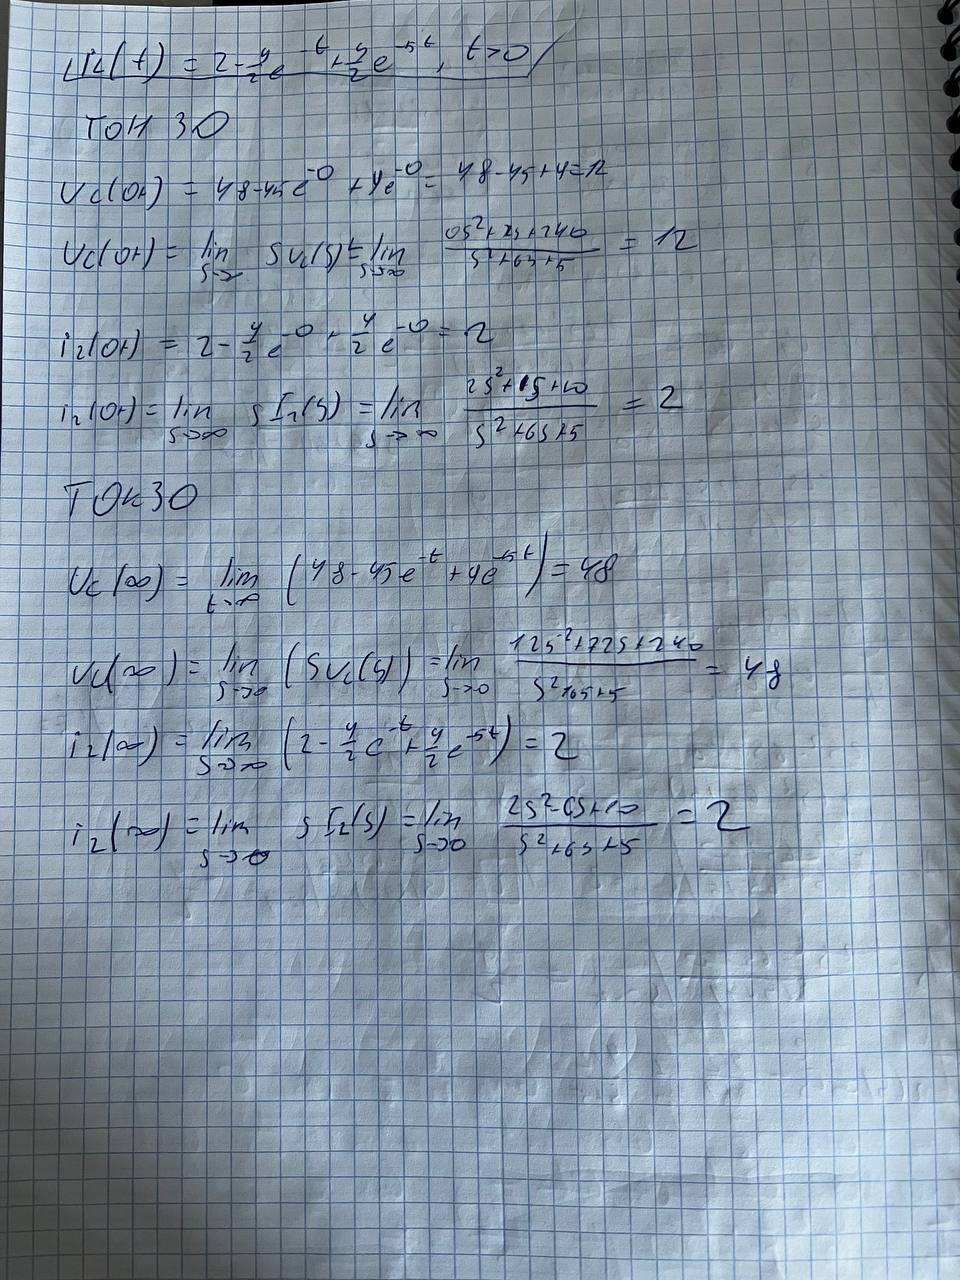 i₂(t) = 2 - 4/2 e^-t + 4/2 e^-5t, t>0
ТОН 30
Uc(0+) = 48-45e^-0 + 4e^-0 = 48-45+4=12
Uc(0+) = lim s→∞ SUc(S) = lim s→∞ / s²+6s+5 = 12
i₂(0+) = 2 - 4/2 e^-0 + 4/2 e^-0 = 2
i₂(0+) = lim s→∞ S I₂(S) = lim s→∞ 2s²+ +10 / s²+6s+5 = 2
ТОК 30
Uc(∞) = lim t→∞ (48-45e^-t + 4e^-5t) = 48
Uc(∞) = lim s→0 (SUc(S)) = lim s→0 12s²+72s+240 / s²+6s+5 = 48
i₂(∞) = lim (2 - 4/2 e^-t + 4/2 e^-5t) = 2
i₂(∞) = lim s→0 S I₂(S) = lim s→0 / s²+6s+5 = 2